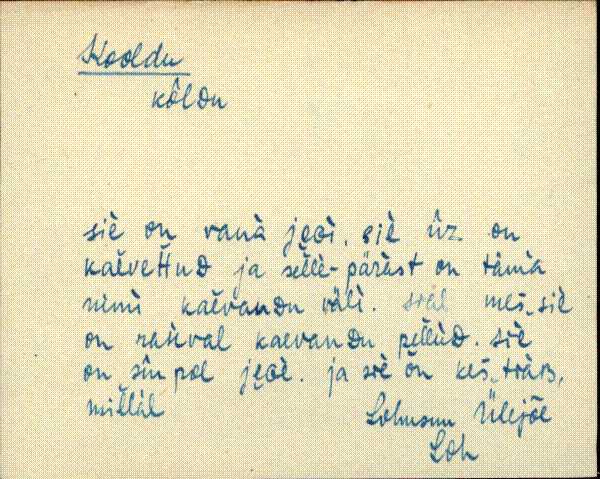 Kooldu
kôldu
siè on vanà jeoi. siè üz on
kaèvettuD ja sellè-pärast on täma
nimi kaèvanDu väli. sial mes, siè
on rahval kaevanDu pelluD. siè
on sîn pol jeoè. ja siè ôn kes, tiàB,
millàl
Lohusuu Ülejõe
Loh